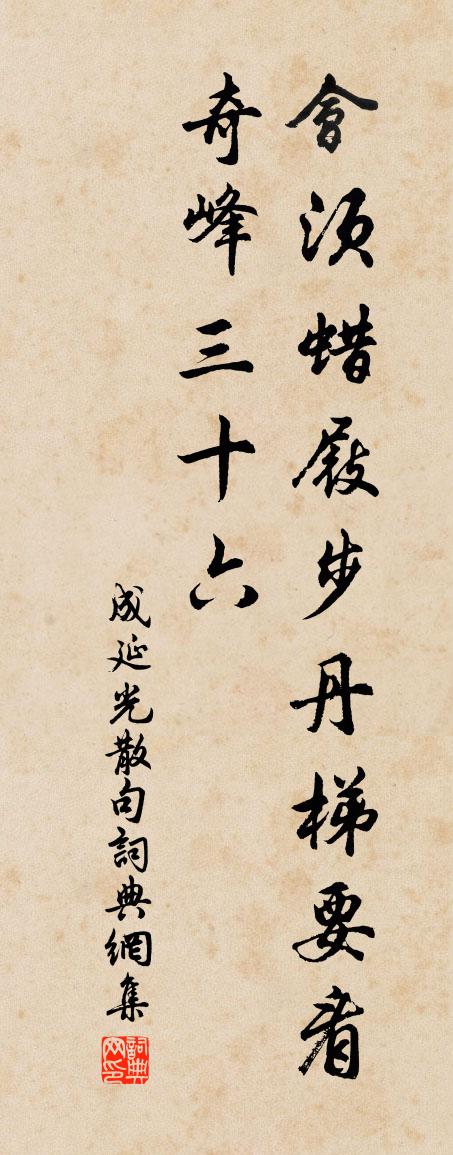 會須蜡屐步丹梯要看
奇峰三十六
成延光散句詞典網集
詞典网印